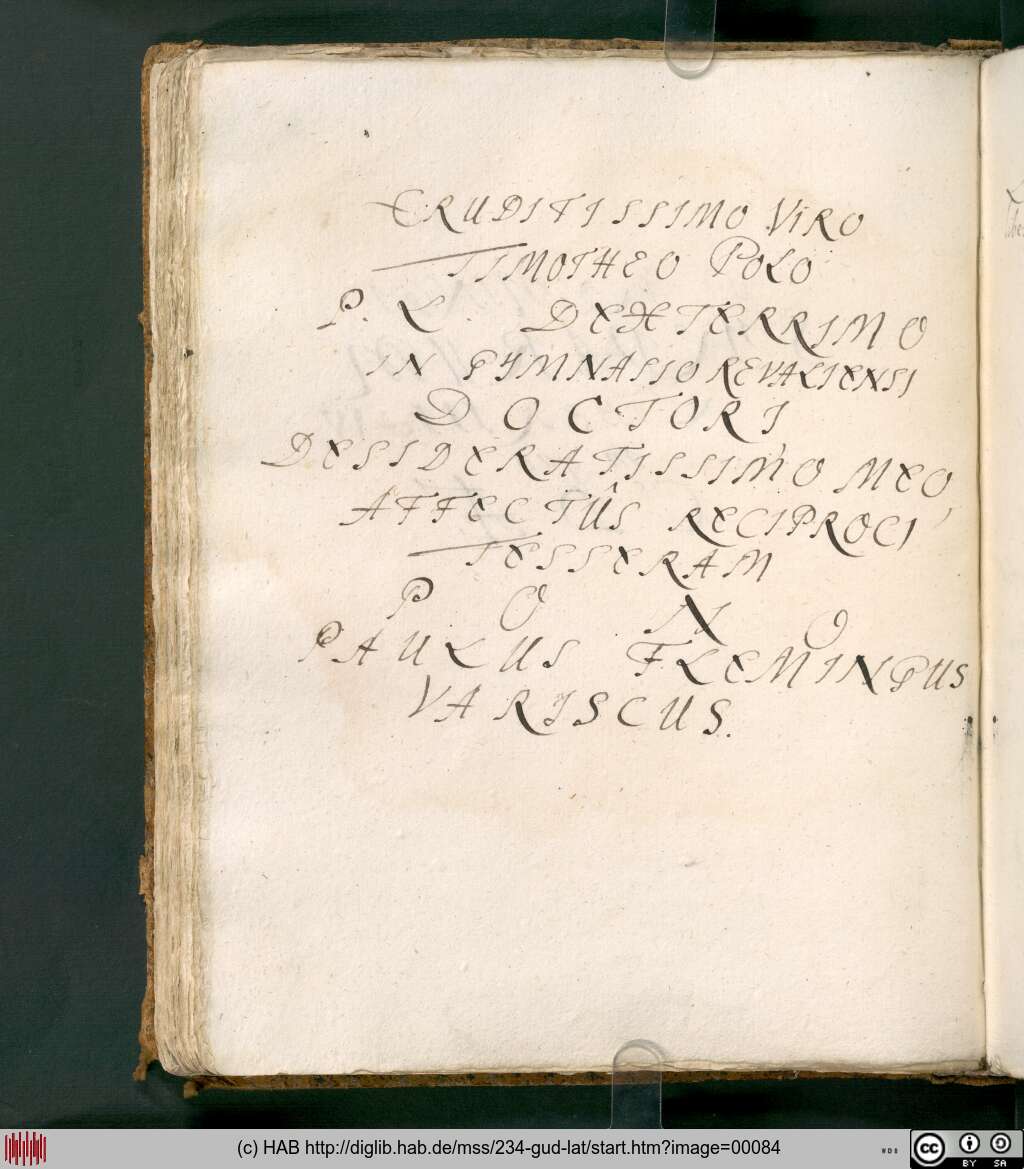 ERUDITISSIMO VIRO
TIMOTHEO POLO
P. L. DEXTERRIMO
IN GYMNASIO REVALIENSI
DOCTORI,
DESIDERATISSIMO MEO,
AFFECTÛS RECIPROCI
TESSERAM
PONO
PAULUS FLEMINGUS
VARISCUS.
(c) HAB http://diglib.hab.de/mss/234-gud-lat/start.htm?image=00084
cc BY SA